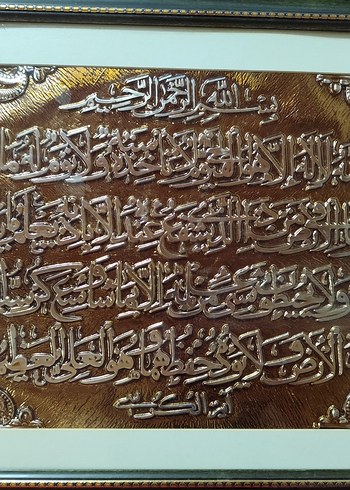 بسم الله الرحمن الرحيم
لا إله إلا هو الحي القيوم لا تأخذه سنة ولا نوم له ما
الأرض من ذا الذي يشفع عنده إلا بإذنه يعلم
ولا يحيطون بشيء من علمه إلا بما شاء وسع كرسيه
الأرض ولا يؤده حفظهما وهو العلي العظيم
آية الكرسي